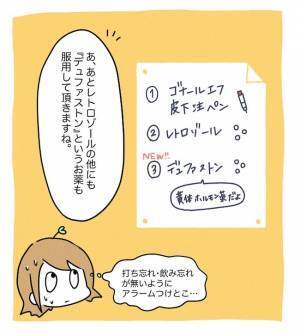 あ、あとレトロゾールの他にも
『デュファストン』というお薬も
服用して頂きますね。
① ゴナールエフ
皮下注ペン
② レトロゾール
NEW!!
③ デュファストン
黄体ホルモン薬だよ
打ち忘れ・飲み忘れ
が無いように
アラームつけとこ…